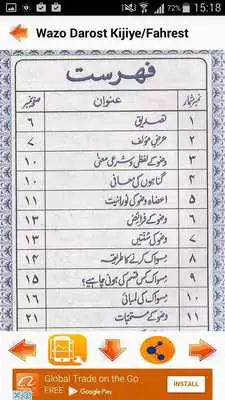 72% 15:18
Wazo Darost Kijiye/Fahrest
فہرست
نمبر شمار عنوان صفحہ نمبر
۱ تصدیق ۶
۲ عرضِ مؤلف ۷
۳ وضو کے لفظی و شرعی معنی ۱۰
۴ گناہوں کی معافی ۱۰
۵ اعضاء وضو کی نورانیت ۱۱
۶ وضو کے فرائض ۱۳
۷ وضو کی سُنتیں ۱۳
۸ مسواک کرنے کا طریقہ ۱۴
۹ مسواک کس قسم کی ہونی چاہیے؟ ۱۵
۱۰ مسواک کی لمبائی ۱۶
۱۱ وضو کے مستحبات ۲۱
Global Trade on the Go
FREE Google Play
INSTALL